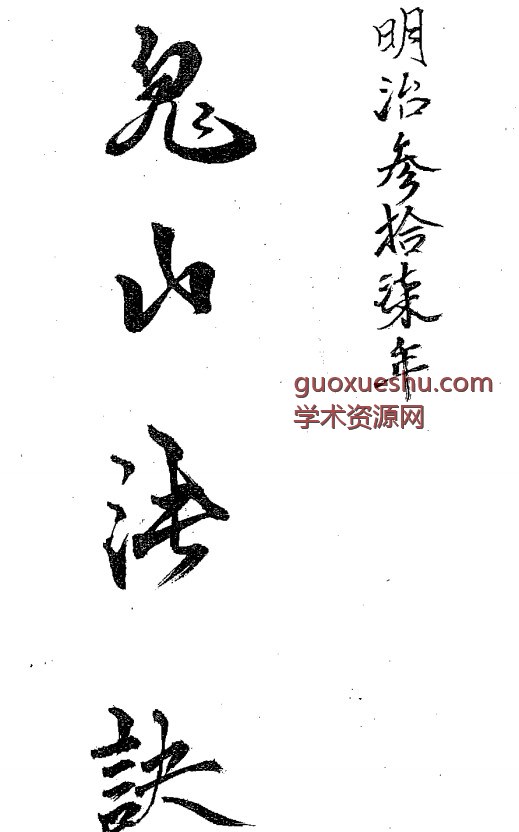 明治参拾柒年
鬼山法訣
guoxueshu.com
学术资源网